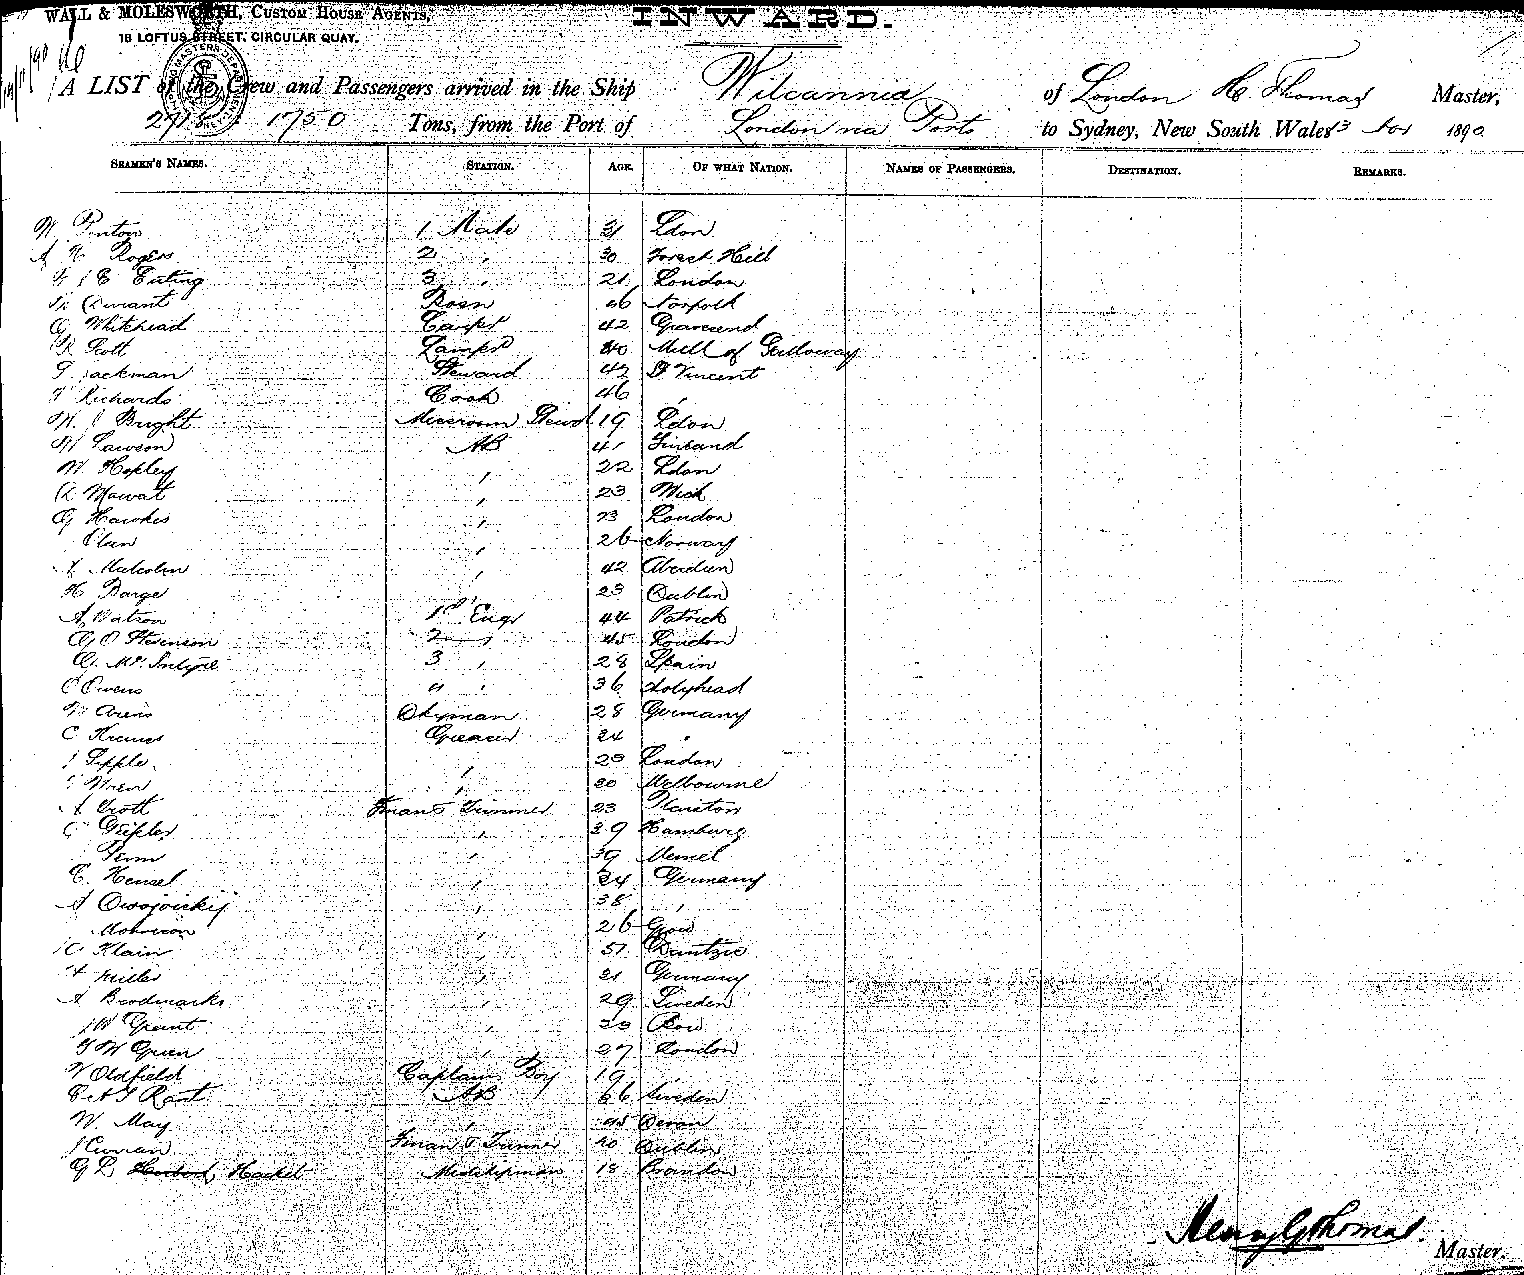 WALL & MOLESWORTH, CUSTOM HOUSE AGENTS,
18 LOFTUS STREET, CIRCULAR QUAY.
INWARD.
A LIST of the Crew and Passengers arrived in the Ship Wilcannia of London H. Thomas Master,
1750 Tons, from the Port of London via Ports to Sydney, New South Wales 13 Nov 1890
SEAMEN'S NAMES. STATION. AGE. OF WHAT NATION. NAMES OF PASSENGERS. DESTINATION. REMARKS.
W Pinton 1 Mate 31 Ldon
A H Rogers 2 " 30 Forest Hill
J E 3 " 21 London
Durrant Bosn Norfolk
G Whitehead Carptr 42 Gravesend
R Scott Lamps 40 Mull of Galloway
Jackman Steward 42 St Vincent
Richards Cook 46 "
W. J Bright Messroom Stewd 19 Ldon
Lawson AB 41 Finland
W Hopley " 22 Ldon
Mowat " 23 Wick
G Hawkes " 23 London
Olsen " 26 Norway
A Malcolm " 42 Aberdeen
H Barge " 23 Dublin
A Watson 1st Engr 44 Patrick
G O Stevenson 2 " 45 London
G. McIntyre 3 " 28 Spain
C Owens 4 " 36 Holyhead
Arens Dkyman 28 Germany
C Greaser 24 "
J Sipple " 29 London
Wren " 20 Melbourne
A Scott Fman & Trimmer 23
" 29 Hamburg
" 39 Memel
C. Hensel " 24 Germany
A " 38 "
Morrison " 26
Klain " 51 Dantzic
" 21 Germany
A Brodmarks " 29 Sweden
J W Grant " 23 Bow
G W Green " 27 London
W Oldfield Captains Boy 19 "
Rant AB 66 Sweden
W. May " 45 Devon
J Curran Fman & Trimmer 20 Dublin
G L Hackett Midshipman 18 Brandon
Henry G Thomas.
Master.